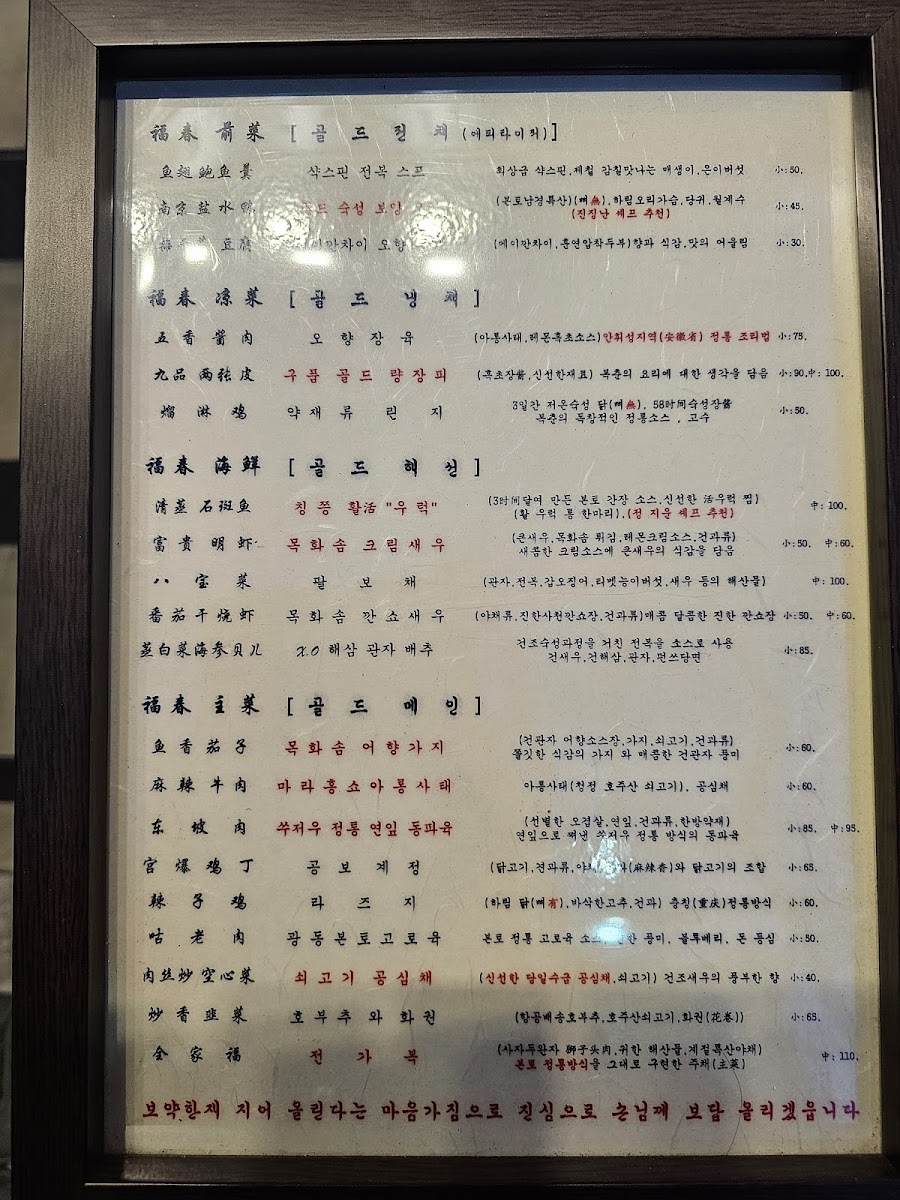 福春 前菜 [골드전채(에피타이저)]
鱼翅鲍鱼羹 샥스핀 전복 스프 최상급 샥스핀,제철 감칠맛나는 매생이,은이버섯 小:50.
南京盐水鸭 숙성 보양 (본토남경특산)(뼈無),하림오리가슴,당귀,월계수 小:45.
(진징난 셰프 추천)
豆腐 메이깐차이 오향 (메이깐차이,훈연압착두부)향과 식감,맛의 어울림 小:30.
福春 凉菜 [골드 냉채]
五香酱肉 오향장육 (아롱사태,레몬흑초소스)안휘성지역(安徽省) 정통 조리법 小:75.
九品 两张皮 구품 골드 량장피 (흑초장醬,신선한재료) 복춘의 요리에 대한 생각을 담음 小:90,中:100.
熘淋鸡 약재류린지 3일간 저온숙성 닭(뼈無), 58时间숙성장醬 小:50.
복춘의 독창적인 정통소스 , 고수
福春 海鲜 [골드 해선]
清蒸 石斑鱼 칭쯩 활活 "우럭" (3时间달여 만든 본토 간장 소스,신선한 活우럭 찜) 中:100.
(활 우럭 통 한마리),(정 지운 셰프 추천)
富贵明虾 목화솜 크림새우 (큰새우,목화솜 튀김,레몬크림소스,견과류) 小:50. 中:60.
새콤한 크림소스에 큰새우의 식감을 담음
八宝菜 팔보채 (관자,전복,갑오징어,티벳능이버섯,새우 등의 해산물) 中:100.
番茄干烧虾 목화솜 깐쇼새우 (야채류,진한사천깐쇼장,견과류)매콤 달콤한 진한 깐쇼장 小:50. 中:60.
蒸白菜海参贝儿 X.O 해삼 관자 배추 건조숙성과정을 거친 전복을 소스로 사용 小:85.
건새우,건해삼,관자,펀쓰당면
福春 主菜 [골드 메인]
鱼香茄子 목화솜 어향가지 (건관자 어향소스장,가지,쇠고기,견과류) 小:60.
쫄깃한 식감의 가지 와 매콤한 건관자 풍미
麻辣牛肉 마라홍쇼아롱사태 아롱사태(청정 호주산 쇠고기), 공심채 小:60.
东坡肉 쑤저우 정통 연잎 동파육 (선별한 오겹살,연잎,견과류,한방약재) 小:85. 中:95.
연잎으로 쪄낸 쑤저우 정통 방식의 동파육
宫爆鸡丁 공보계정 (닭고기,견과류,야채 (麻辣香)와 닭고기의 조합 小:65.
辣子鸡 라즈지 (하림 닭(뼈有),바삭한고추,견과) 충칭(重庆)정통방식 小:60.
咕老肉 광동본토고로육 본토 정통 고로육 소스 풍미, 블루베리, 돈 등심 小:50.
肉丝炒空心菜 쇠고기 공심채 (신선한 당일수급 공심채,쇠고기) 건조새우의 풍부한 향 小:40.
炒香韭菜 호부추와화권 (항공배송호부추,호주산쇠고기,화권(花卷)) 小:65.
全家福 전가복 (사자두완자 獅子头肉,귀한 해산물,계절특산야채) 中:110.
본토 정통방식을 그대로 구현한 주채(主菜)
보약한재 지어 올린다는 마음가짐으로 진심으로 손님께 보답 올리겠읍니다